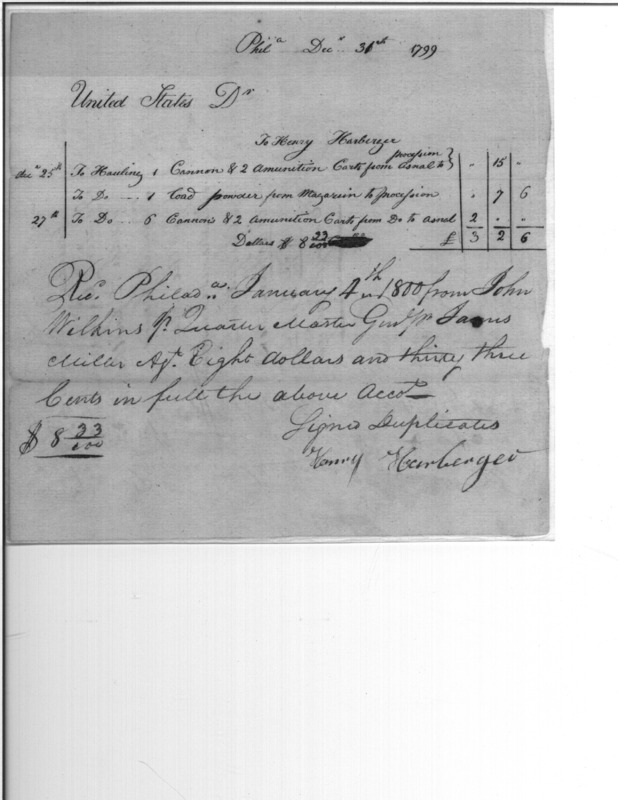 Phila Decr 31st 1799
United States Dr
To Henry Harberger
procession
decr 25th To Hauling 1 Cannon & 2 Amunition Carts from Asnal to } " 15 "
To Do ... 1 Load powder from Magazein to Procession " 7 6
27th To Do ... 6 Cannon & 2 Amunition Carts from Do to Asnal 2 " "
Dollars $ 8 33/100 £ 3 2 6
Recd Philada January 4th 1800 from John
Wilkins Jr Quarter Master Genl pr James
Miller Agt Eight dollars and thirty three
Cents in full the above Accot
Signed Duplicates
$ 8 33/100
Henry Harberger